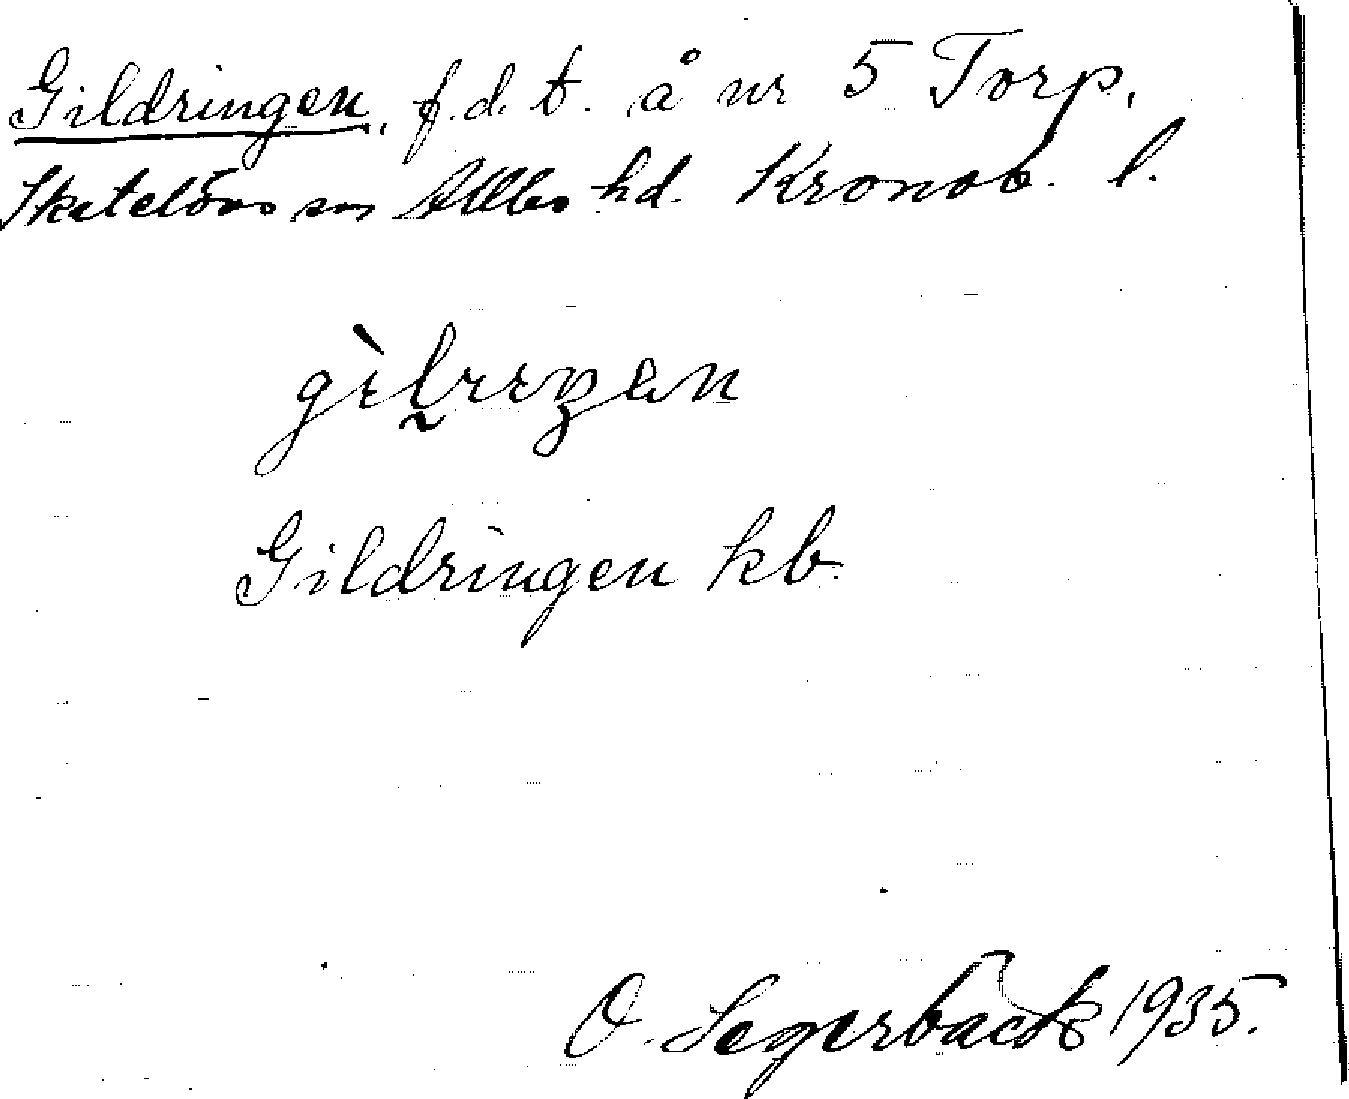 Gildringen, f.d. t. å nr 5 Torp.
Skatelövs sn Allbo hd. Kronob. l.
Gildringen kb.
O. Segerbäck 1935.